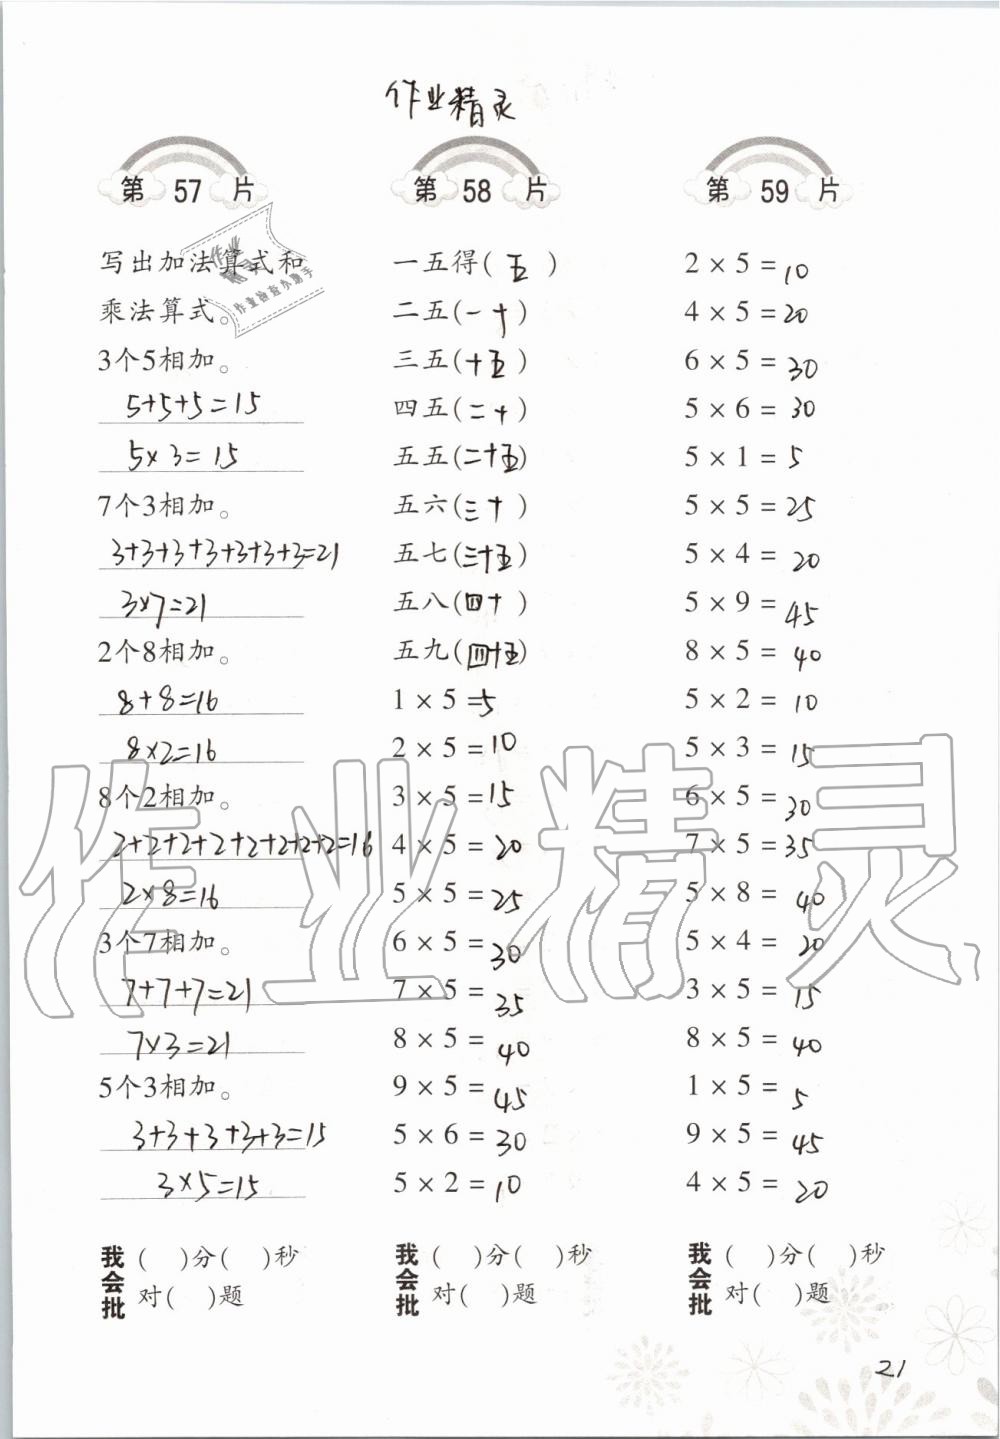 作业精灵
第 57 片
写出加法算式和
乘法算式。
3个5相加。
5+5+5=15
5×3=15
7个3相加。
3+3+3+3+3+3+3=21
3×7=21
2个8相加。
8+8=16
8×2=16
8个2相加。
2+2+2+2+2+2+2+2=16
2×8=16
3个7相加。
7+7+7=21
7×3=21
5个3相加。
3+3+3+3+3=15
3×5=15
我会批 ( )分( )秒
对( )题
第 58 片
一五得( 五 )
二五(一十)
三五(十五)
四五(二十)
五五(二十五)
五六(三十)
五七(三十五)
五八(四十)
五九(四十五)
1 × 5 = 5
2 × 5 = 10
3 × 5 = 15
4 × 5 = 20
5 × 5 = 25
6 × 5 = 30
7 × 5 = 35
8 × 5 = 40
9 × 5 = 45
5 × 6 = 30
5 × 2 = 10
我会批 ( )分( )秒
对( )题
第 59 片
2 × 5 = 10
4 × 5 = 20
6 × 5 = 30
5 × 6 = 30
5 × 1 = 5
5 × 5 = 25
5 × 4 = 20
5 × 9 = 45
8 × 5 = 40
5 × 2 = 10
5 × 3 = 15
6 × 5 = 30
7 × 5 = 35
5 × 8 = 40
5 × 4 = 20
3 × 5 = 15
8 × 5 = 40
1 × 5 = 5
9 × 5 = 45
4 × 5 = 20
我会批 ( )分( )秒
对( )题
作业精灵
21